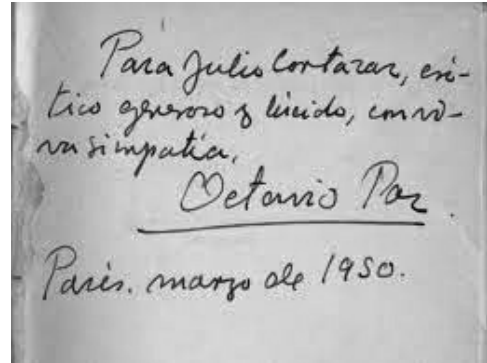 Para Julio Cortazar, crí-
tico generoso y lúcido, con vi-
va simpatía,
Octavio Paz.
París. marzo de 1950.